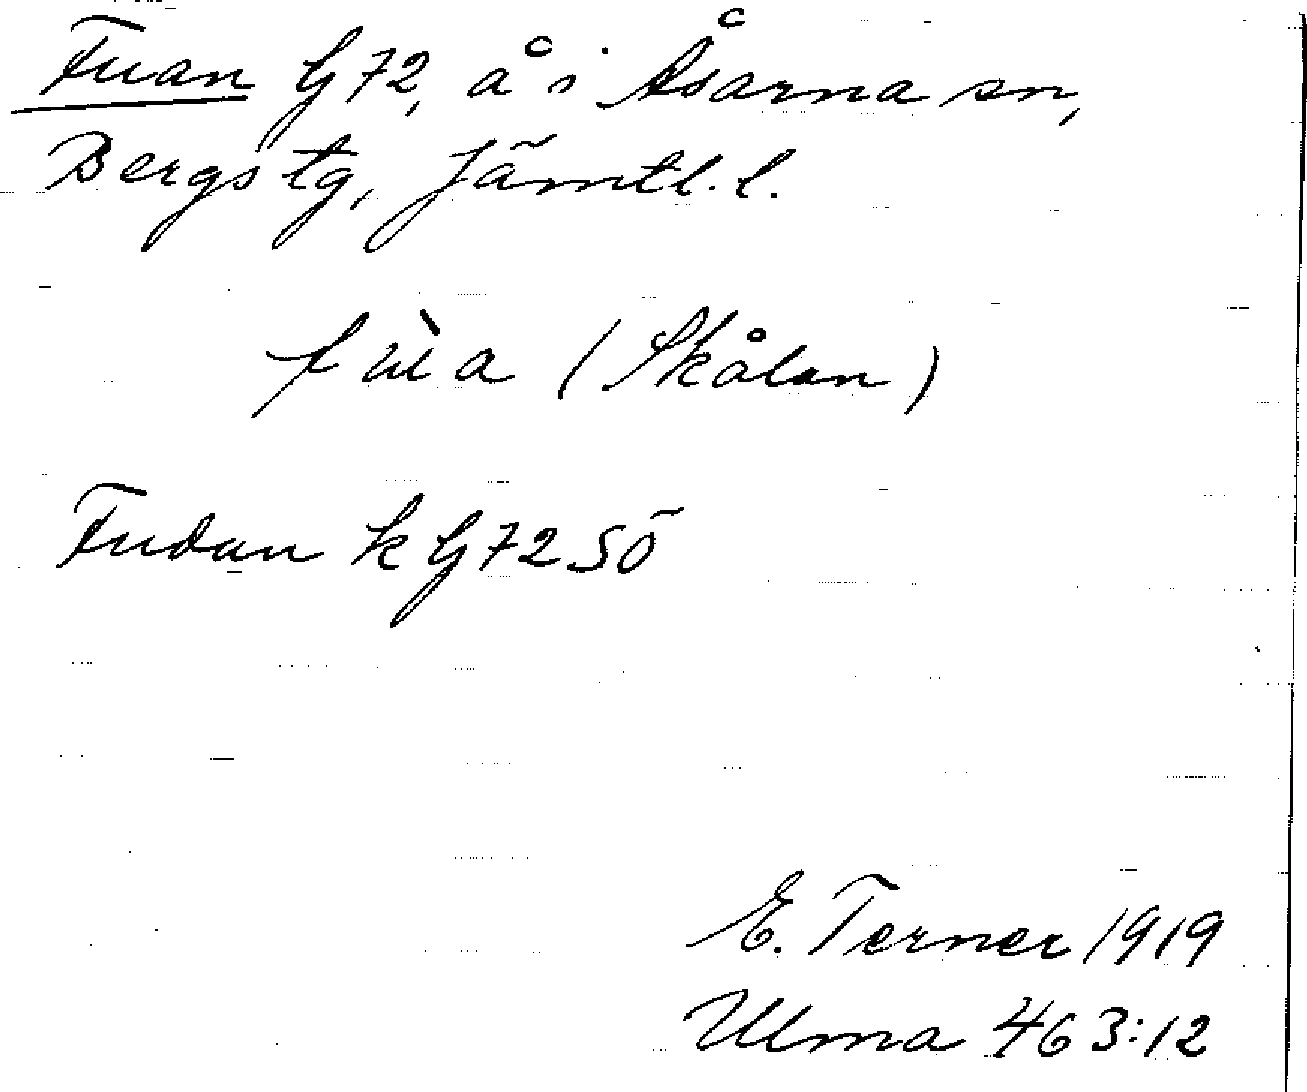 Fuan G72, å i Åsarna sn,
Bergs tg, Jämtl. l.
fùa (Skålan)
Fudan k G72 SÖ
E. Terner 1919
Ulma 463:12